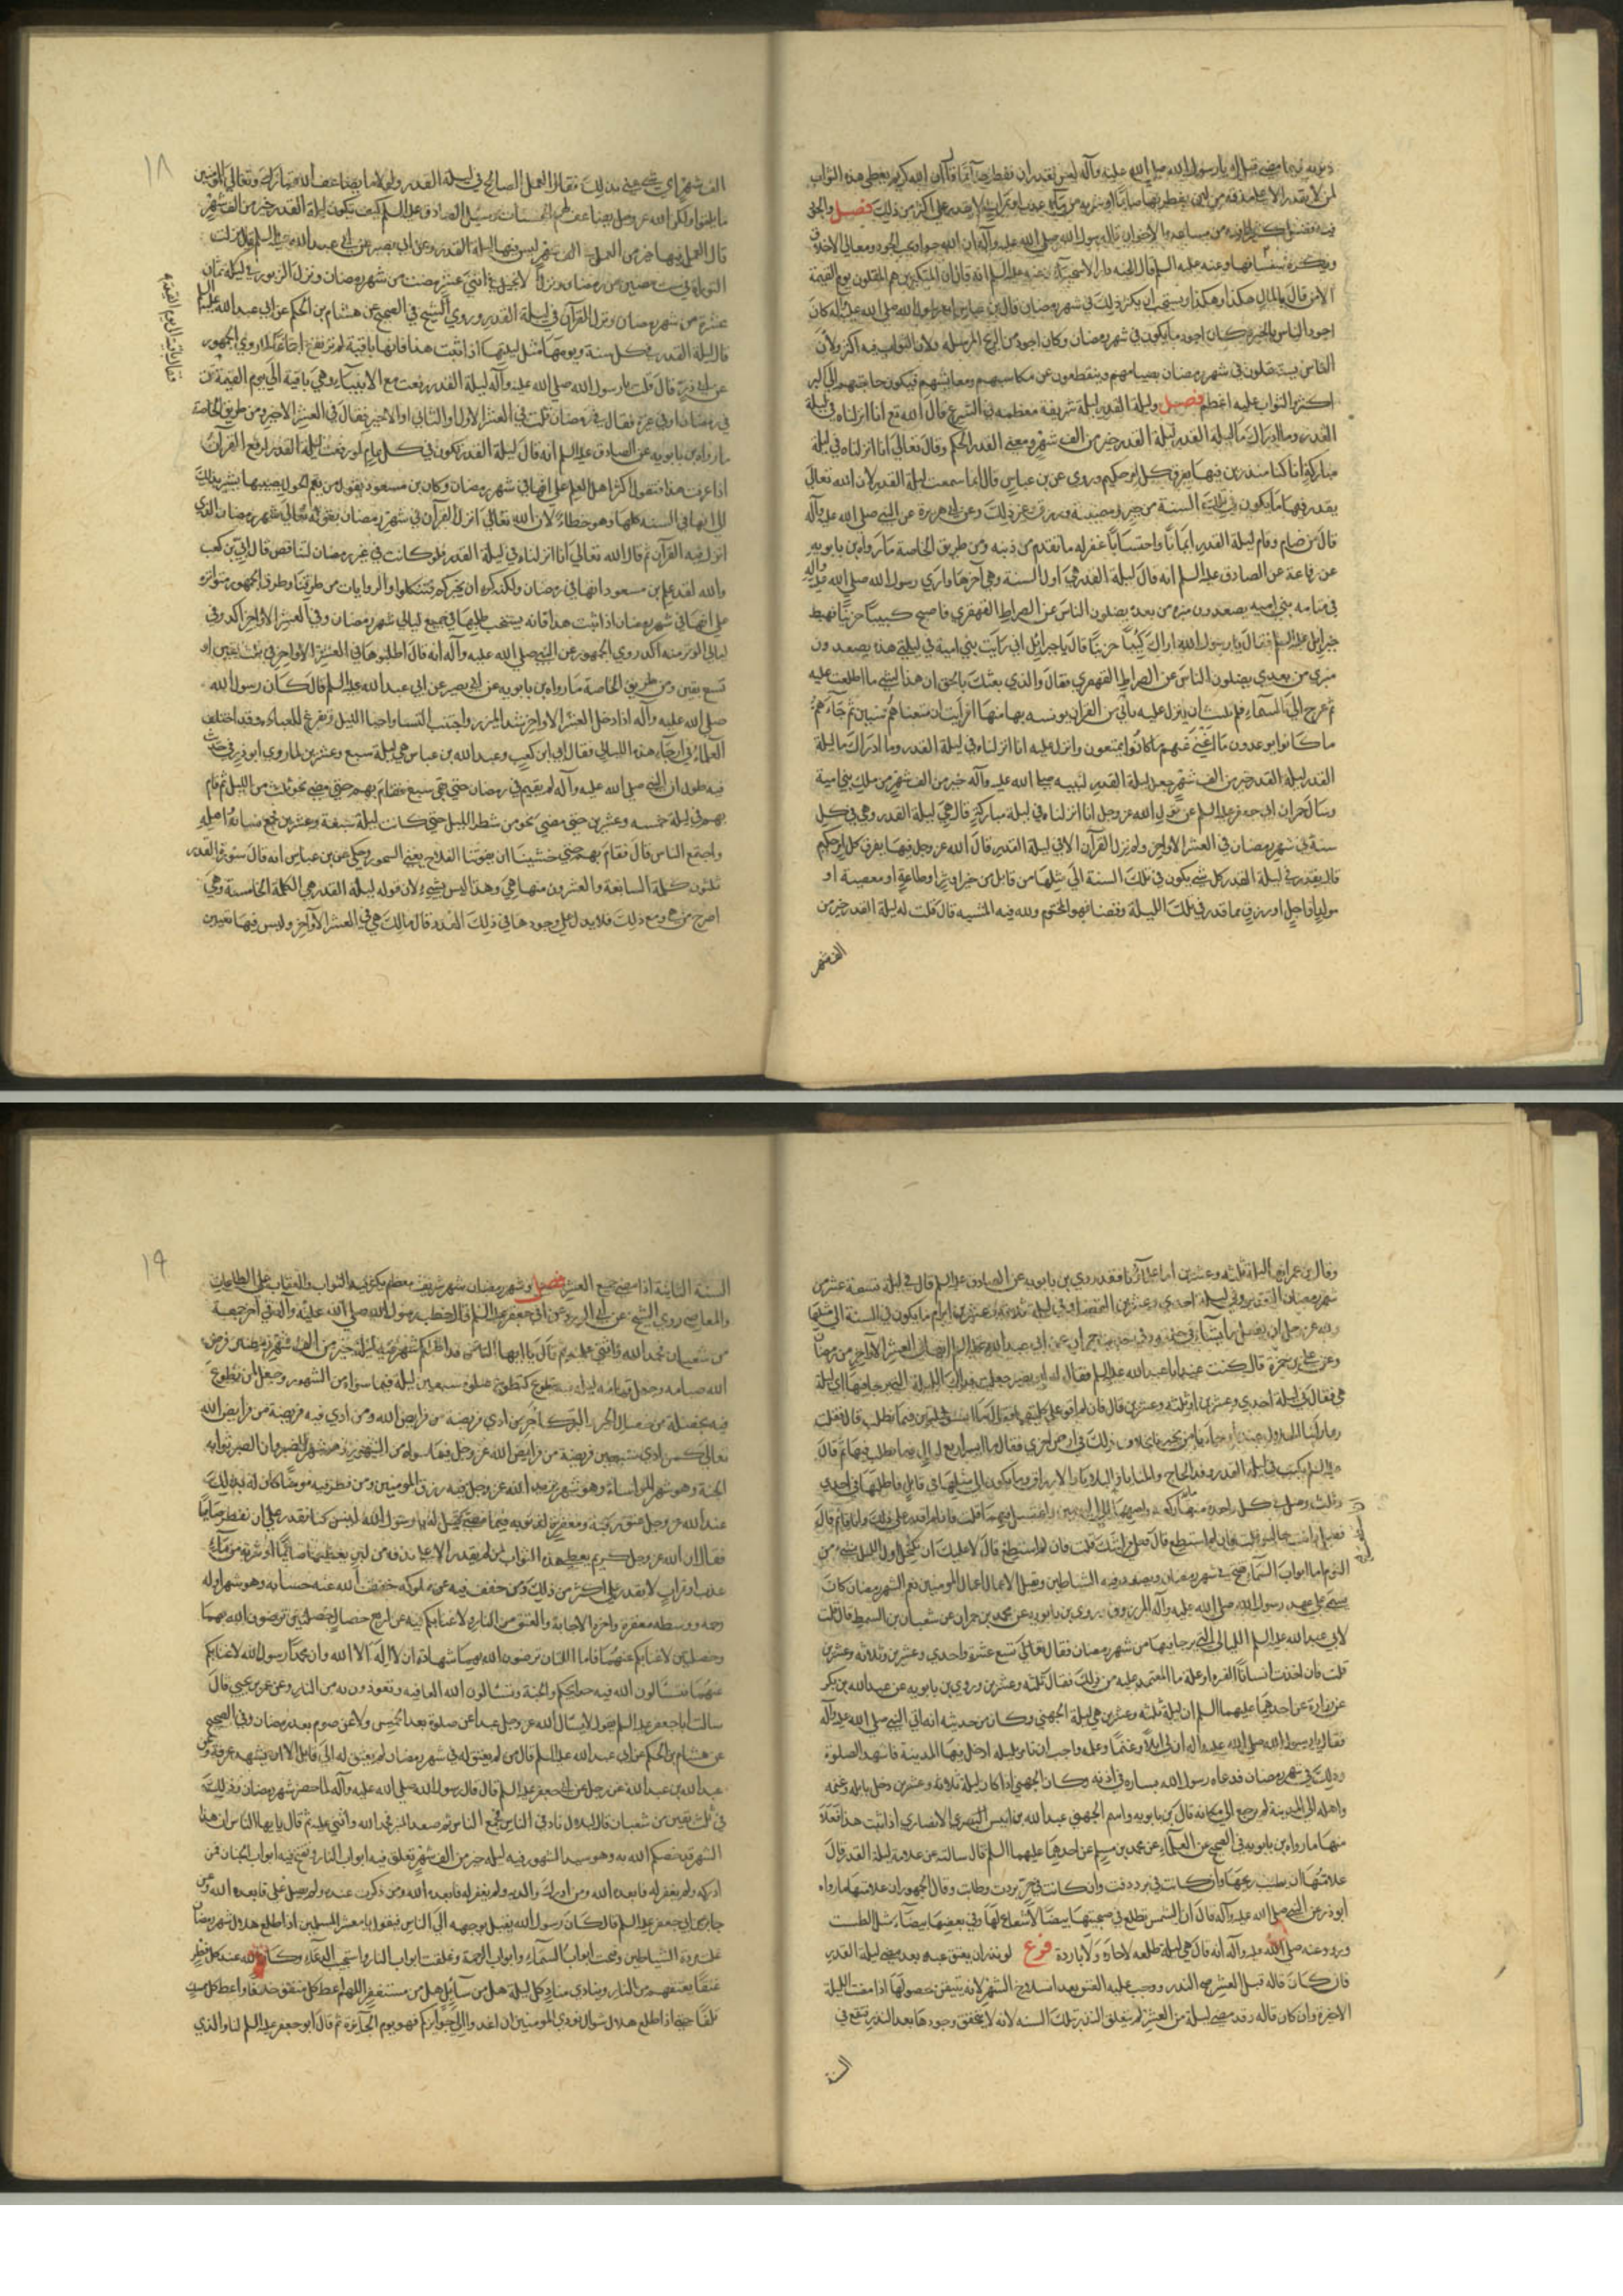 ذنوبه فيما مضى قيل له يا رسول الله صلى الله عليه وآله ليس نقدر ان نفطر صائما قال ان الله كريم يعطي هذه الثواب
لمن لا يقدر الا على مذقة من لبن يفطر بها صائما او شربة من ماء عذب او تمرات لا يقدر على اكثر من ذلك فصل
ويكره عنه عليه السلام قال الجنة دار الاسخياء
الا من قال بالمال هكذا وهكذا ويستحب ان يكثر ذلك في شهر رمضان قال بن عباس رسول الله صلى الله عليه وآله كان
اجود الناس بالخير وكان اجود ما يكون في شهر رمضان وكان اجود من الريح المرسلة ولان الثواب فيه اكثر ولان
الناس يشتغلون في شهر رمضان بصيامهم وينقطعون عن مكاسبهم ومعايشهم فيكون حاجتهم الى البر
اكثر والثواب عليه اعظم فصل وليلة القدر ليلة شريفة معظمة في الشرع قال الله تع انا انزلناه في ليلة
القدر وما ادراك ما ليلة القدر ليلة القدر خير من الف شهر ومعنى القدر الحكم وقال تعالى انا انزلناه في ليلة
مباركة انا كنا منذرين فيها يفرق كل امر حكيم وروي عن بن عباس قال انما سميت ليلة القدر لان الله تعالى
يقدر فيها ما يكون في تلك السنة من خير ومصيبة ورزق وغير ذلك وعن ابي هريرة عن النبي صلى الله عليه وآله
قال من صام وقام ليلة القدر ايمانا واحتسابا غفر له ما تقدم من ذنبه ومن طريق الخاصة ما رواه بن بابويه
عن رفاعة عن الصادق عليه السلم انه قال ليلة القدر هي اول السنة وهي آخرها واري رسول الله صلى الله عليه وآله
في منامه بني اميه يصعدون منبره من بعده يضلون الناس عن الصراط القهقرى فاصبح كئيبا حزينا فهبط
جبرائيل عليه السلم فقال يا رسول الله اراك كئيبا حزينا قال يا جبرائيل اني رايت بني امية في ليلتي هذه يصعدون
منبري من بعدي يضلون الناس عن الصراط القهقرى فقال والذي بعثك بالحق ان هذا لشئ ما اطلعت عليه
ثم عرج الى السماء فلم يلبث ان نزل عليه بآي من القرآن يونسه بها منها افرأيت ان متعناهم سنين ثم جاءهم
ما كانوا يوعدون ما اغنى عنهم ما كانوا يمتعون وانزل عليه انا انزلناه في ليلة القدر وما ادراك ما ليلة
القدر ليلة القدر خير من الف شهر جعل ليلة القدر لنبيه صلى الله عليه وآله خير من الف شهر من ملك بني امية
وسال حمران ابي جعفر عليه السلم عن قول الله عز وجل انا انزلناه في ليلة مباركة قال هي ليلة القدر وهي في كل
سنة في شهر رمضان في العشر الاواخر ولم ينزل القرآن الا في ليلة القدر قال الله عز وجل فيها يفرق كل امر حكيم
قال يقدر في ليلة القدر كل شئ يكون في تلك السنة الى مثلها من قابل من خير او شر او طاعة او معصية او
مولود او اجل او رزق مما قدر في تلك الليلة وقضا فهو المحتوم ولله فيه المشيه قال قلت له ليلة القدر خير من
الف شهر
١٨
الف شهر اي شئ عني بذلك فقال العمل الصالح في ليلة القدر ولولا ما يضاعف الله تبارك وتعالى للمؤمنين
ما بلغوا ولكن الله عز وجل يضاعف لهم الحسنات وسئل الصادق عليه السلم كيف تكون ليلة القدر خير من الف شهر
قال العمل فيها خير من العمل في الف شهر ليس فيها ليلة القدر وعن ابي بصير عن ابي عبد الله عليه السلم قال نزلت
التوراة في ست مضين من رمضان ونزل الانجيل في اثنتي عشرة مضت من شهر رمضان ونزل الزبور في ليلة ثمان
عشرة من شهر رمضان ونزل القرآن في ليلة القدر وروى الشيخ في الصحيح عن هشام بن الحكم عن ابي عبد الله عليه السلم
قال ليلة القدر في كل سنة ويومها مثل ليلتها اذا ثبت هذا فانها باقية لم ترتفع اجماعا لما روى الجمهور
عن ابي ذر قال قلت يا رسول الله صلى الله عليه وآله ليلة القدر رفعت مع الانبياء او هي باقية الى يوم القيمة
في رمضان او في غيره فقال في رمضان قلت في العشر الاول او الثاني او الاخير فقال في العشر الاخير ومن طريق الخاصة
ما رواه بن بابويه عن الصادق عليه السلم انه قال ليلة القدر تكون في كل عام لو رفعت ليلة القدر لرفع القرآن
اذا عرفت هذا فنقول اكثر اهل العلم على انها في شهر رمضان وكان بن مسعود يقول من يقم الحول يصيبها يشير بذلك
الى انها في السنة كلها وهو خطاء لان الله تعالى انزل القرآن في شهر رمضان بقوله تعالى شهر رمضان الذي
انزل فيه القرآن ثم قال الله تعالى انا انزلناه في ليلة القدر فلو كانت في غير رمضان لتناقض قال ابي بن كعب
والله لقد علم بن مسعود انها في رمضان ولكنه كره ان يخبركم فتتكلوا والروايات من طرقنا وطرق الجمهور متواترة
على انها في شهر رمضان اذا ثبت هذا فانه يستحب طلبها في جميع ليالي شهر رمضان وفي العشر الاواخر اكد وفي
ليالي الوتر منه اكد روى الجمهور عن النبي صلى الله عليه وآله انه قال اطلبوها في العشر الاواخر في ثلث بقين او
تسع بقين ومن طريق الخاصة ما رواه بن بابويه عن ابي بصير عن ابي عبد الله عليه السلم قال كان رسول الله
صلى الله عليه وآله اذا دخل العشر الاواخر شد المئزر واجتنب النساء واحيا الليل وتفرغ للعبادة وقد اختلف
العلماء في ارجاء هذه الليالي فقال ابي ابن كعب وعبد الله بن عباس هي ليلة سبع وعشرين لما روى ابو ذر في حديث
فيه طول ان النبي صلى الله عليه وآله لم يقم في رمضان حتى بقي سبع فقام بهم حتى مضى نحو ثلث من الليل ثم قام
بهم في ليلة خمسه وعشرين حتى مضى نحو من شطر الليل حتى كانت ليلة سبعة وعشرين فجمع نساءه واهله
واجتمع الناس قال فقام بهم حتى خشينا ان يفوتنا الفلاح يعني السحور وحكي عن بن عباس انه قال سورة القدر
ثلثون كلمة السابعة والعشرون منها هي وهذا ليس بشئ لان قوله ليلة القدر هي الكلمة الخامسة وهي
اصرح من هي ومع ذلك فلا يدل على وجودها في ذلك العدد قال مالك هي في العشر الاواخر وليس فيها تعيين
وقال بن عمر انها ليلة ثلثه وعشرين اما علماؤنا فقد روى بن بابويه عن الصادق عليه السلم قال في ليلة تسعة عشر من
شهر رمضان التقدير وفي ليلة احدى وعشرين القضا وفي ليلة ثلاثة وعشرين ابرام ما يكون في السنة الى مثلها
ولله عز وجل ان يفعل ما يشاء في خلقه
وعن علي بن حمزة قال كنت عند ابا عبد الله عليه السلم فقال له ابو بصير جعلت فداك الليلة التي يرجا فيها اي ليلة
هي فقال في ليلة احدى وعشرين او ثلثه وعشرين قال فان لم اقو على كلتيهما فقال ما ايسر ليلتين فيما تطلب قال فقلت
ربما راينا الهلال عندنا وجاءنا من يخبر بخلاف ذلك في ارض اخرى فقال ما ايسر اربع ليال فيما تطلب فيها ثم قال
فعل ذلك وانت جالس قلت فان لم استطع قال فعلى فراشك قلت فان لم استطع قال لا عليك ان تكتحل اول الليل بشئ من
النوم اما ابواب السماء تفتح في شهر رمضان ويصفد فيه الشياطين وتقبل الاعمال اعمال المومنين نعم الشهر رمضان كان
يسمى على عهد رسول الله صلى الله عليه وآله المرزوق وروى بن بابويه عن محمد بن حمران عن سفيان بن السمط قال قلت
لابي عبد الله عليه السلم الليالي التي يرجا فيها من شهر رمضان فقال تسع عشرة واحدى وعشرين وثلاثه وعشرين
قلت فان اخذت انسانا الفترة او علة ما المعتمد عليه من ذلك فقال ثلثه وعشرين وروى بن بابويه عن عبد الله بن بكير
عن زرارة عن احدهما عليهما السلم ان ليلة ثلثه وعشرين هي ليلة الجهني وكان من حديثه انه اتى النبي صلى الله عليه وآله
فقال يا رسول الله صلى الله عليه وآله ان لي ابلا وغنما وغلمة واحب ان تامر بليلة ادخل فيها المدينة فاشهد الصلوة
وذلك في شهر رمضان فدعاه رسول الله فساره في اذنه وكان الجهني اذا كان ليلة ثلاثه وعشرين دخل بابله وغنمه
واهله الى المدينة ثم رجع الى مكانه قال بن بابويه واسم الجهني عبد الله بن انيس الانصاري اذا ثبت هذا
منها ما رواه بن بابويه في الصحيح عن العلاء عن محمد بن مسلم عن احدهما عليهما السلم قال سالته عن علامة ليلة القدر قال
علامتها ان تطيب ريحها وان كانت في برد دفئت وان كانت في حر بردت وطابت وقال الجمهور ان علامتها ما رواه
ابو ذر عن النبي صلى الله عليه وآله قال ان الشمس تطلع في صبيحتها بيضا لا شعاع لها وفي بعضها بيضاء مثل الطست
وروي عنه صلى الله عليه وآله انه قال هي ليلة طلعة لا حارة ولا باردة فرع لو نذر ان يعتق عبده بعد مضي ليلة القدر
فان كان قاله قبل العشر صح النذر ووجب عليه العتق بعد انسلاخ الشهر لانه يتيقن حصولها اذا مضت الليلة
الاخيرة وان كان قاله وقد مضى ليلة من العشر لم يتعلق النذر بتلك السنه لانه لا يتحقق وجودها بعد النذر فيقع في
السنة
١٩
السنة الثانية اذا مضى جميع العشر فصل وشهر رمضان شهر شريف معظم يكثر فيه الثواب والعقاب على الطاعات
والمعاصي روى الشيخ عن ابي الورد عن ابي جعفر عليه السلم قال خطب رسول الله صلى الله عليه وآله في آخر جمعة
من شعبان فحمد الله واثنى عليه ثم قال يا ايها الناس قد اظلكم شهر فيه ليلة خير من الف شهر وهو رمضان فرض
الله صيامه وجعل قيام ليله بتطوع كتطوع صلوة سبعين ليلة فيما سواه من الشهور وجعل لمن تطوع
فيه بخصلة من خصال الخير والبر كاجر من ادى فريضة من فرايض الله ومن ادى فيه فريضة من فرايض الله
تعالى كمن ادى سبعين فريضة من فرايض الله عز وجل فيما سواه من الشهور وهو شهر الصبر وان الصبر ثوابه
الجنة وهو شهر المواساة وهو شهر يزيد الله عز وجل فيه رزق المومنين ومن فطر فيه مومنا كان له بذلك
عند الله عز وجل عتق رقبة ومغفرة لذنوبه فيما مضى قيل له يا رسول الله ليس كلنا نقدر على ان نفطر صايما
فقال ان الله عز وجل كريم يعطي هذا الثواب لمن لم يقدر الا على مذقه من لبن يعطيها صائما او شربة من ماء
عذب او تمرات لا يقدر على اكثر من ذلك ومن خفف فيه عن مملوكه خفف الله عنه حسابه وهو شهر اوله
رحمة ووسطه مغفرة واخره الاجابة والعتق من النار ولا غنا بكم فيه عن اربع خصال خصلتين ترضون الله بهما
وخصلتين لا غنا بكم عنهما فاما اللتان ترضون الله بهما شهادة ان لا اله الا الله وان محمدا رسول الله لا غنا بكم
عنهما فتسالون الله فيه حوايجكم والجنة وتسالون الله العافيه وتعوذون به من النار وعن عمر بن يحيى قال
سالت ابا جعفر عليه السلم يقول لا يسال الله عز وجل عبدا عن صلوة بعد الخمس ولا عن صوم بعد رمضان وفي الصحيح
عن هشام بن الحكم عن ابي عبد الله عليه السلم قال من لم يغفر له في شهر رمضان لم يغفر له الى قابل الا ان يشهد عرفة وعن
عبد الله بن عبد الله عن رجل عن ابي جعفر عليه السلم قال قال رسول الله صلى الله عليه وآله لما حضر شهر رمضان وذلك
في ثلث بقين من شعبان قال لبلال ناد في الناس فجمع الناس ثم صعد المنبر فحمد الله واثنى عليه ثم قال يا ايها الناس ان هذا
الشهر قد خصكم الله به وهو سيد الشهور فيه ليلة خير من الف شهر تغلق فيه ابواب النار وتفتح فيه ابواب الجنان فمن
ادركه ولم يغفر له فابعده الله ومن ادرك والديه ولم يغفر له فابعده الله ومن ذكرت عنده ولم يصل علي فابعده الله وعن
جابر عن ابي جعفر عليه السلم قال كان رسول الله يقبل بوجهه الى الناس فيقول يا معشر المسلمين اذا طلع هلال شهر رمضان
غلت مردة الشياطين وفتحت ابواب السماء وابواب الرحمة وغلقت ابواب النار واستجيب الدعاء وكان لله عند كل فطر
عتقا يعتقهم من النار وينادي مناد كل ليلة هل من سايل هل من مستغفر اللهم اعط كل منفق خلفا واعط كل ممسك
تلفا حتى اذا طلع هلال شوال نودي المومنين ان اغدوا الى جوايزكم فهو يوم الجائزة ثم قال ابو جعفر عليه السلم اما والذي